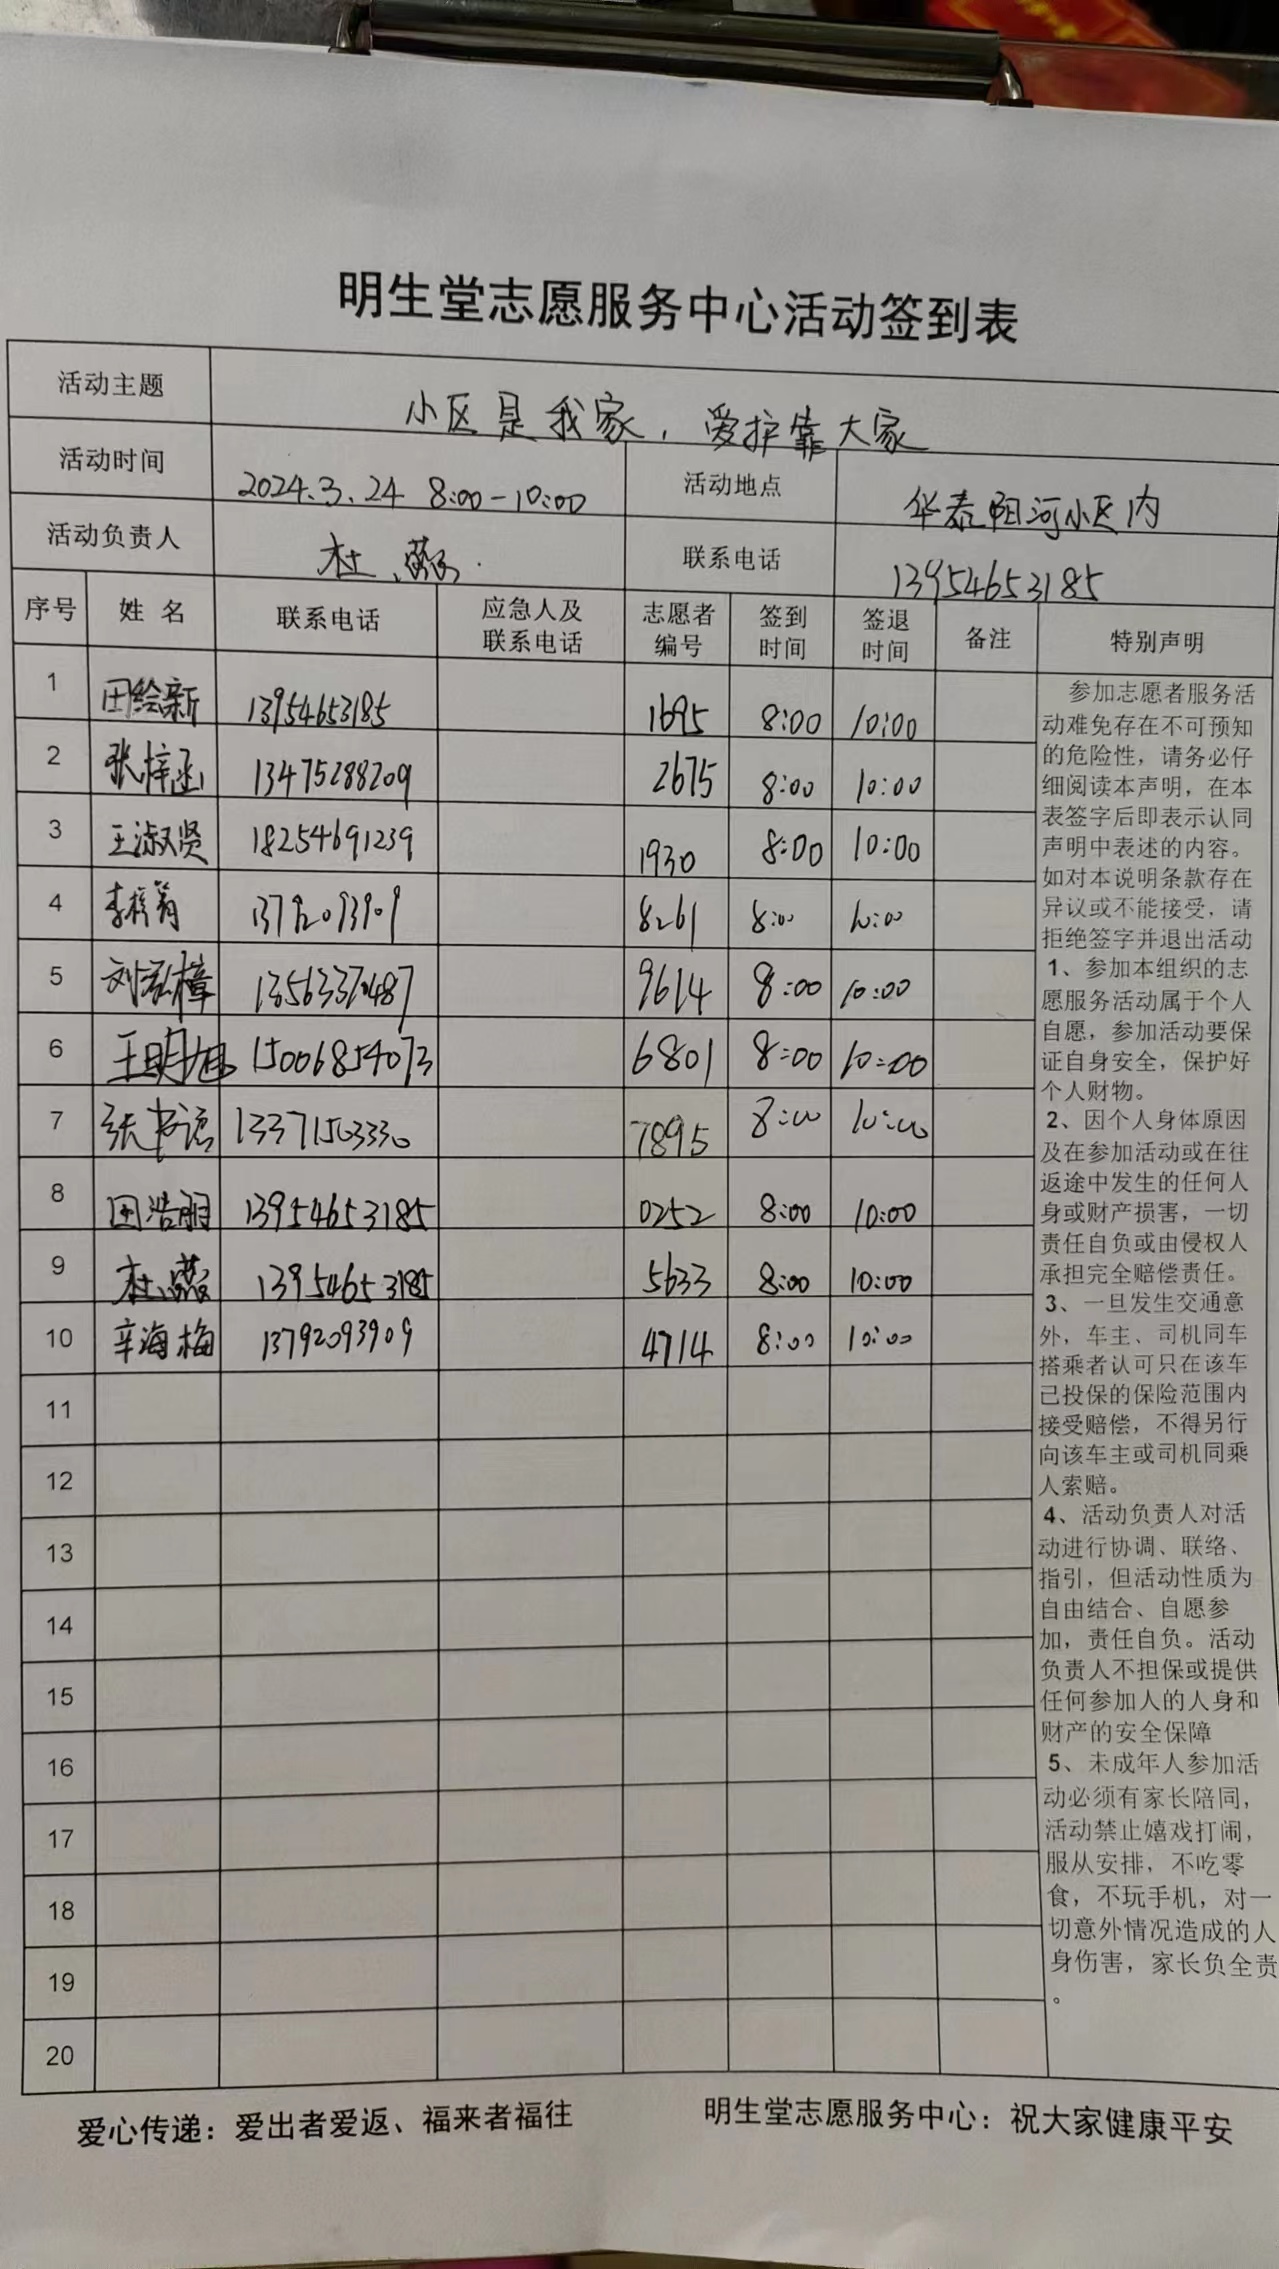 明生堂志愿服务中心活动签到表
活动主题 小区是我家，爱护靠大家
活动时间 2024.3.24 8:00-10:00 活动地点 华泰阳河小区内
活动负责人 杜燕 联系电话 13954653185
序号 姓名 联系电话 应急人及联系电话 志愿者编号 签到时间 签退时间 备注 特别声明
1 田绘新 13954653185 1695 8:00 10:00
2 张梓涵 13475288209 2675 8:00 10:00
3 王淑贤 18254691239 1930 8:00 10:00
4 李梓 13792093909 8261 8:00 10:00
5 刘泓樟 13563370487 9614 8:00 10:00
6 王明旭 15006854073 6801 8:00 10:00
7 张书语 13371503330 7895 8:00 10:00
8 田浩朋 13954653185 0252 8:00 10:00
9 杜燕 13954653185 5633 8:00 10:00
10 辛海梅 13792093909 4714 8:00 10:00
11
12
13
14
15
16
17
18
19
20
参加志愿者服务活
动难免存在不可预知
的危险性，请务必仔
细阅读本声明，在本
表签字后即表示认同
声明中表述的内容。
如对本说明条款存在
异议或不能接受，请
拒绝签字并退出活动
1、参加本组织的志
愿服务活动属于个人
自愿，参加活动要保
证自身安全，保护好
个人财物。
2、因个人身体原因
及在参加活动或在往
返途中发生的任何人
身或财产损害，一切
责任自负或由侵权人
承担完全赔偿责任。
3、一旦发生交通意
外，车主、司机同车
搭乘者认可只在该车
已投保的保险范围内
接受赔偿，不得另行
向该车主或司机同乘
人索赔。
4、活动负责人对活
动进行协调、联络、
指引，但活动性质为
自由结合、自愿参
加，责任自负。活动
负责人不担保或提供
任何参加人的人身和
财产的安全保障
5、未成年人参加活
动必须有家长陪同，
活动禁止嬉戏打闹，
服从安排，不吃零
食，不玩手机，对一
切意外情况造成的人
身伤害，家长负全责
。
爱心传递：爱出者爱返、福来者福往 明生堂志愿服务中心：祝大家健康平安